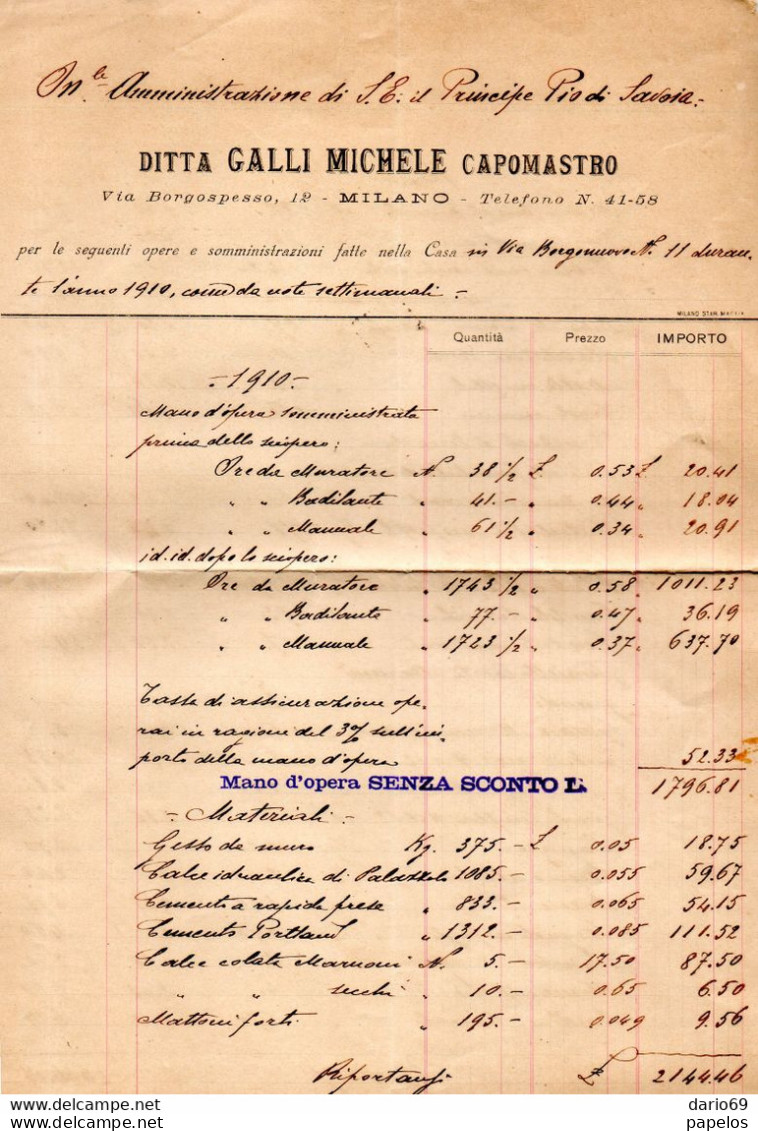 On.le Amministrazione di S.E. il Principe Pio di Savoia.-
DITTA GALLI MICHELE CAPOMASTRO
Via Borgospesso, 12 - MILANO - Telefono N. 41-58
per le seguenti opere e somministrazioni fatte nella Casa in Via Borgonuovo N. 11 duran-
te l'anno 1910, come da note settimanali.-
MILANO STAB.
Quantità Prezzo IMPORTO
- 1910 -
Mano d'opera somministrata
prima dello sciopero:
Ore da Muratore N. 38 1/2 £ 0.53 £ 20.41
" " Badilante " 41.- " 0.44 " 18.04
" " Manuale " 61 1/2 " 0.34 " 20.91
id. id. dopo lo sciopero:
Ore da Muratore " 1743 1/2 " 0.58 " 1011.23
" " Badilante " 77.- " 0.47 " 36.19
" " Manuale " 1723 1/2 " 0.37 " 637.70
Tassa di assicurazione ope-
rai in ragione del 3% sull'im-
porto della mano d'opera 52.33
Mano d'opera SENZA SCONTO L. 1796.81
- Materiali -
Gesso da muro Kg. 375.- £ 0.05 18.75
Calce idraulica di Palazzolo 1085.- 0.055 59.67
Cemento a rapida presa " 833.- 0.065 54.15
Cemento Portland " 1312.- 0.085 111.52
Calce colata Marnoni N. 5.- 17.50 87.50
" " secchi " 10.- 0.65 6.50
Mattoni forti " 195.- 0.049 9.56
Riportansi £ 2144.46
delcampe.net dario69
delcampe.net papelos